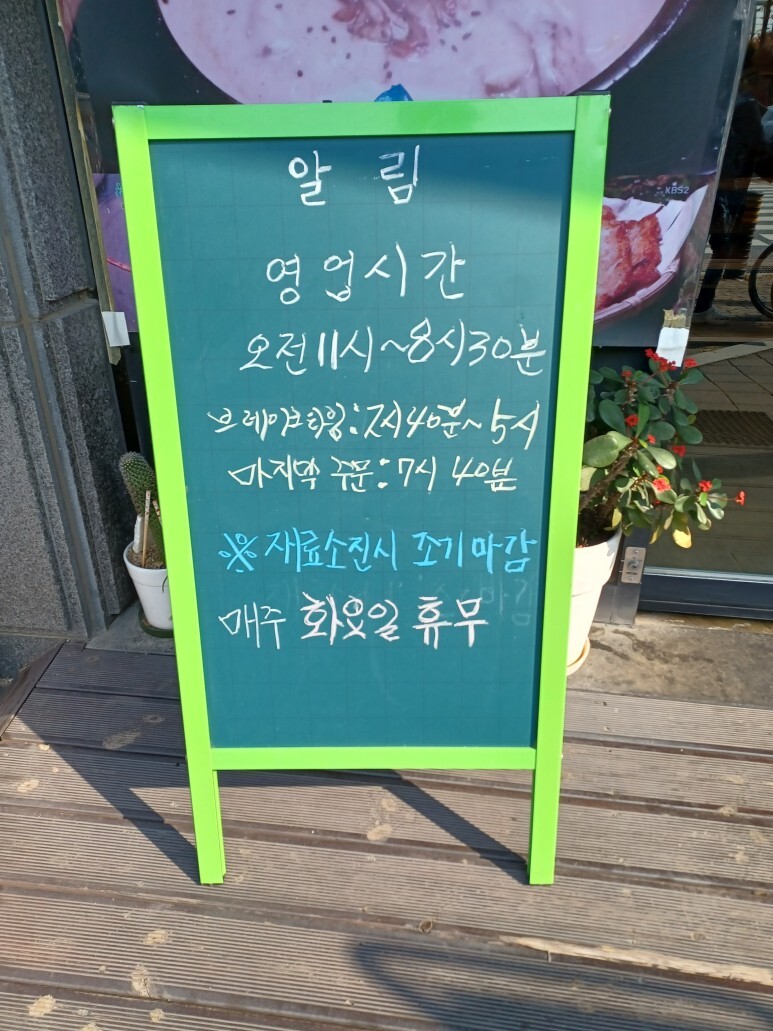 KBS2
알 림
영업시간
오전11시~8시30분
브레이크타임:2시40분~5시
마지막 주문:7시 40분
※재료소진시 조기마감
매주 화요일 휴무